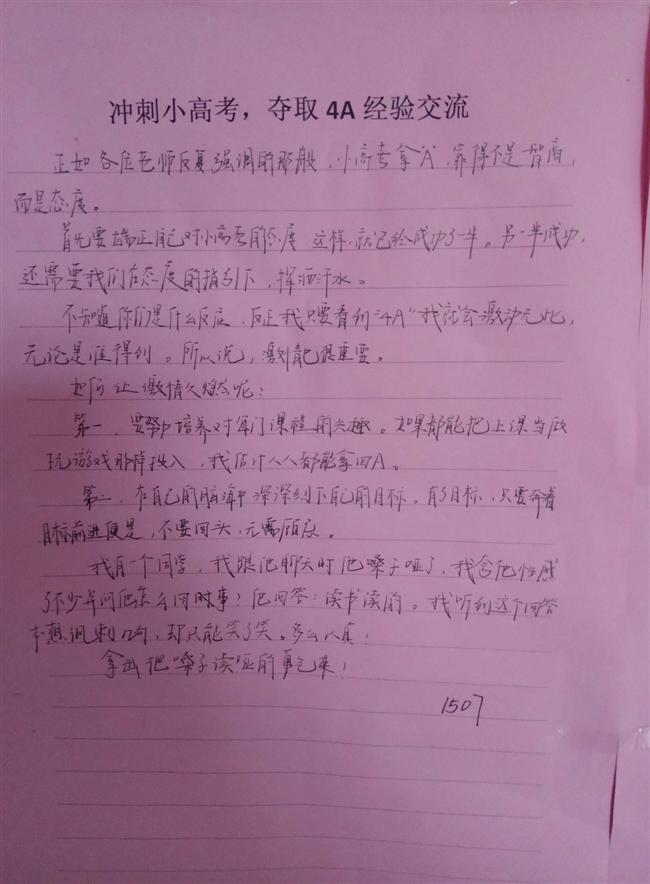 冲刺小高考，夺取 4A 经验交流
正如各位老师反复强调的那般，小高考拿“A”，靠得不是智商，
而是态度。
首先要端正自己对小高考的态度，这样，就已经成功了一半。另一半成功，
还需要我们在态度的指引下，挥洒汗水。
不知道你们是什么反应，反正我只要看到“4A”我就会激动无比，
无论是谁得到。所以说，激情也很重要。
如何让激情久燃呢：
第一，要努力培养对每门课程的兴趣。如果都能把上课当成
玩游戏那样投入，我估计人人都能拿回A。
第二，在自己的脑海中深深刻下自己的目标。有了目标，只要奔着
目标前进便是，不要回头，无需顾忌。
我有一个同学，我跟他聊天时他嗓子哑了，我含他性感
了不少并问他怎么回时事？他回答：读书读的。我听到这个回答
本想讽刺几句，却只能笑了笑。多么认真！
拿出把嗓子读哑的勇气来！
1507